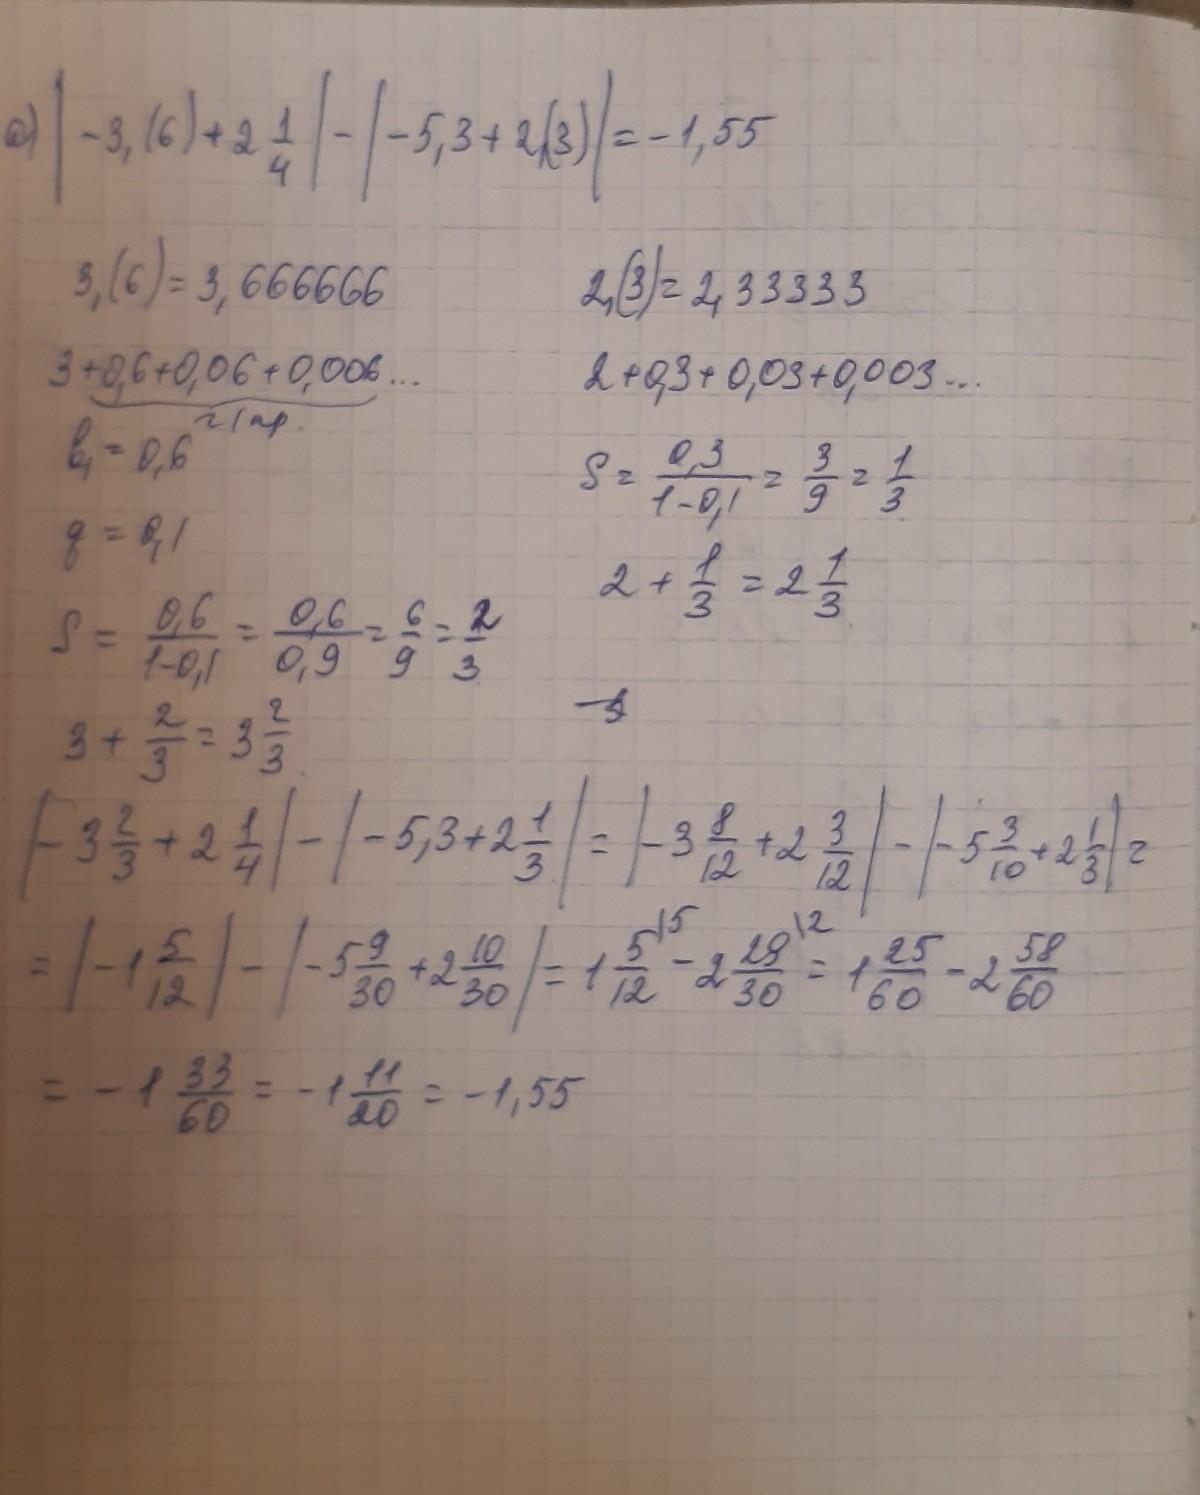 а) |-3,(6)+2 1/4|-|-5,3+2,(3)|=-1,55
3,(6)=3,666666
3+0,6+0,06+0,006...
г/пр.
b₁=0,6
q=0,1
S=0,6/(1-0,1)=0,6/0,9=6/9=2/3
3+2/3=3 2/3
2,(3)=2,33333
2+0,3+0,03+0,003...
S=0,3/(1-0,1)=3/9=1/3
2+1/3=2 1/3
|-3 2/3+2 1/4|-|-5,3+2 1/3|=|-3 8/12+2 3/12|-|-5 3/10+2 1/3|=
=|-1 5/12|-|-5 9/30+2 10/30|=1 5/12\5-2 29/30\2=1 25/60-2 58/60
=-1 33/60=-1 11/20=-1,55